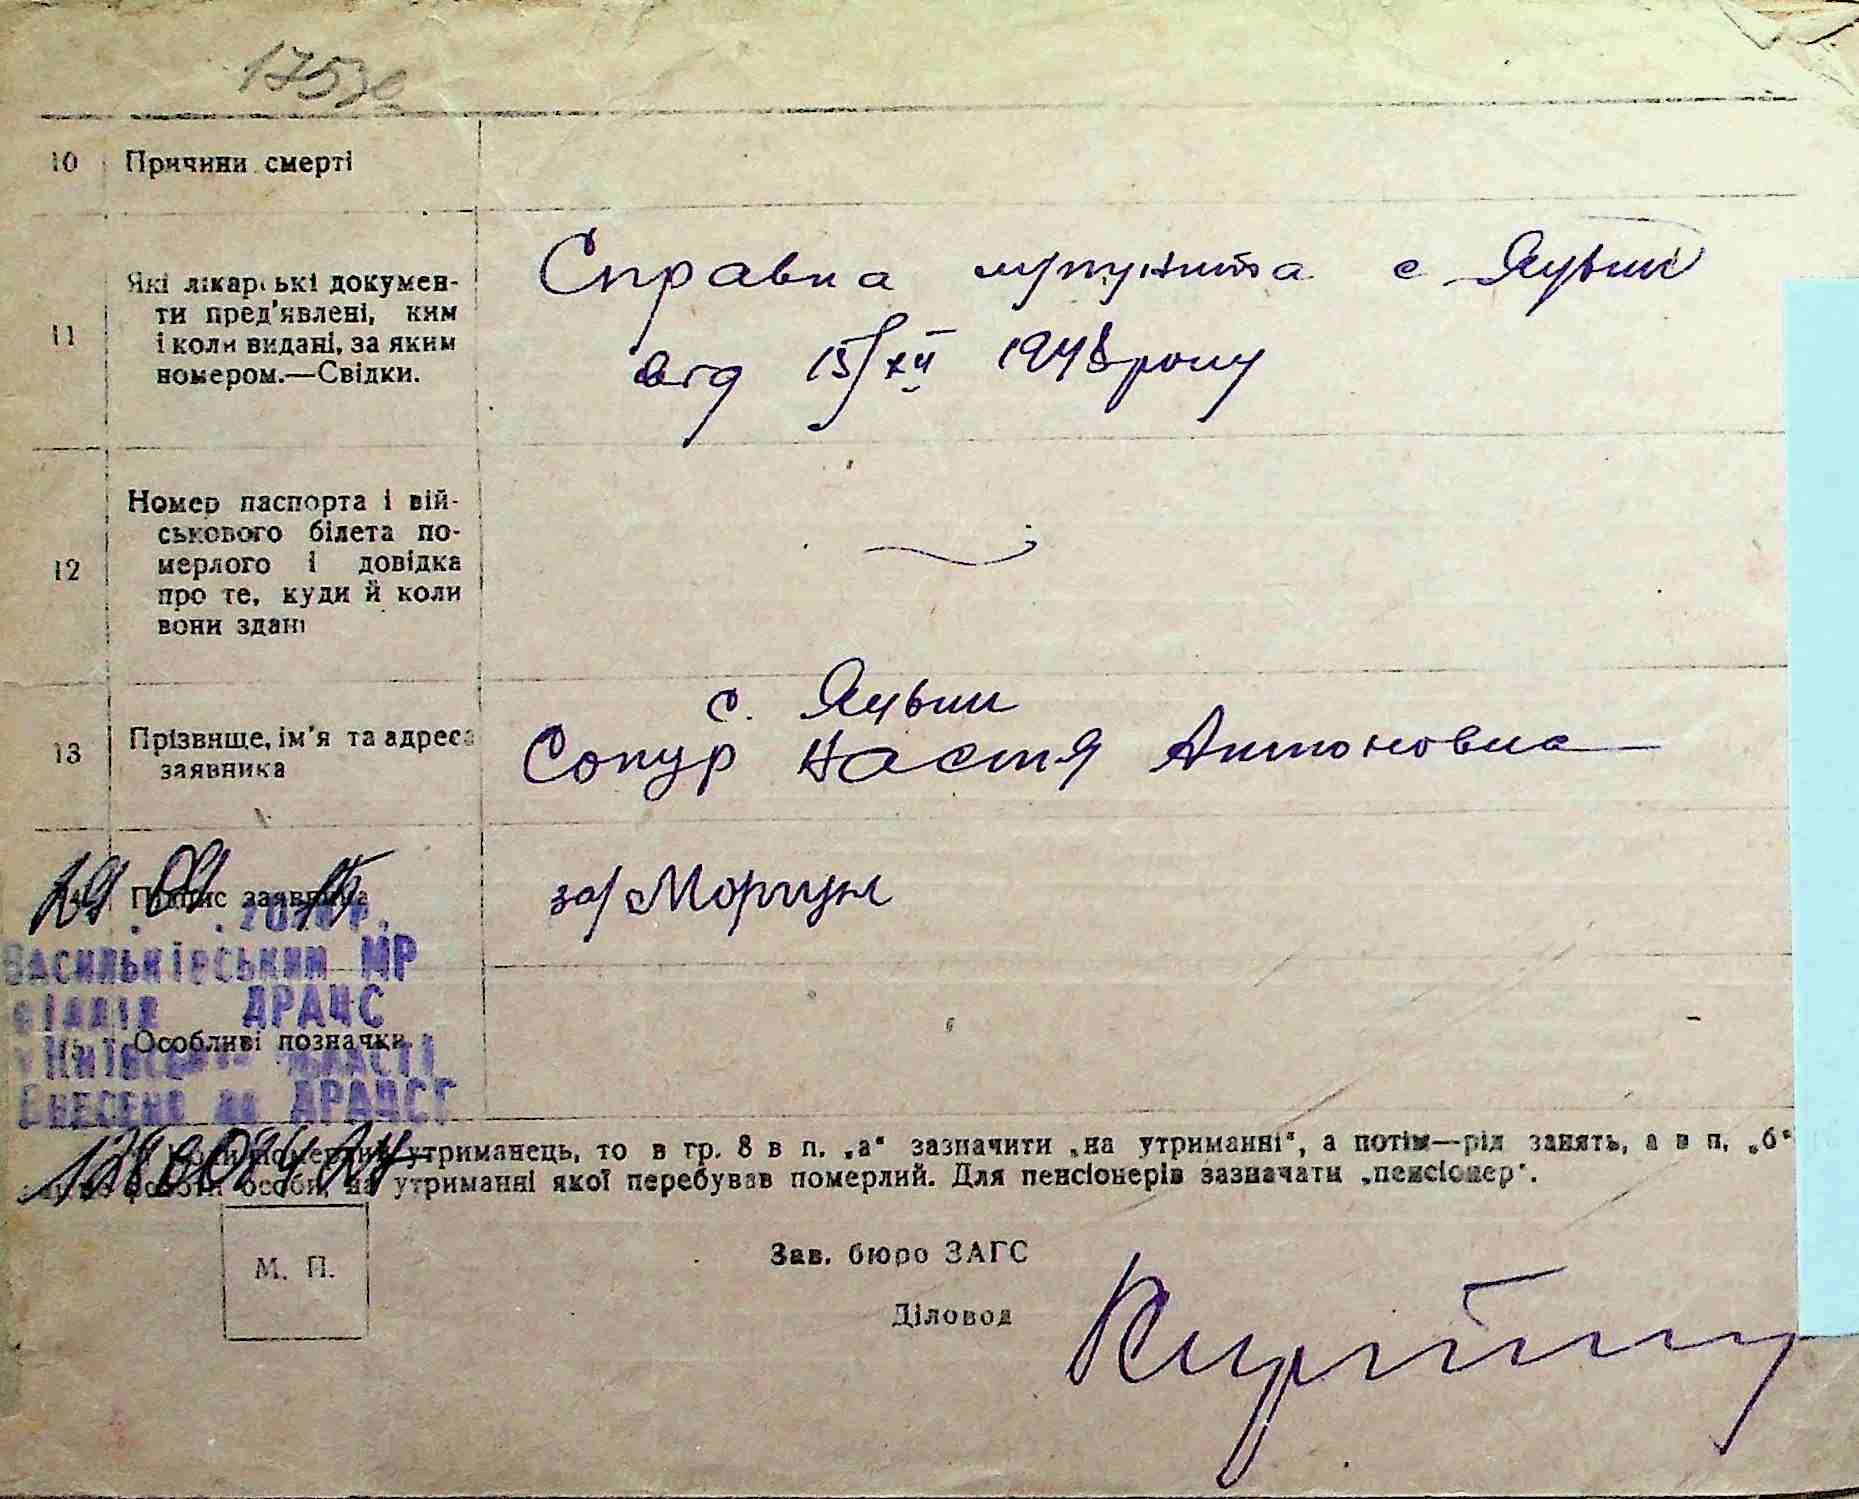 10 Причини смерті
11 Які лікарські докумен-
ти пред'явлені, ким
і коли видані, за яким
номером.—Свідки.
Справка с Яцьки
від 15/XII 1948 року
12 Номер паспорта і вій-
ськового білета по-
мерлого і довідка
про те, куди й коли
вони здані
с. Яцьки
13 Прізвище, ім'я та адреса
заявника
Сопур Настя Антоновна
Підпис заявника
за/
Васильківський МР
відділ ДРАЦС
у Київській області
Внесено до ДРАЦСГ
Особливі позначки
утриманець, то в гр. 8 в п. „а“ зазначити „на утриманні“, а потім—рід занять, а в п. „б“
особи, на утриманні якої перебував померлий. Для пенсіонерів зазначати „пенсіонер“.
М. П.
Зав. бюро ЗАГС
Діловод